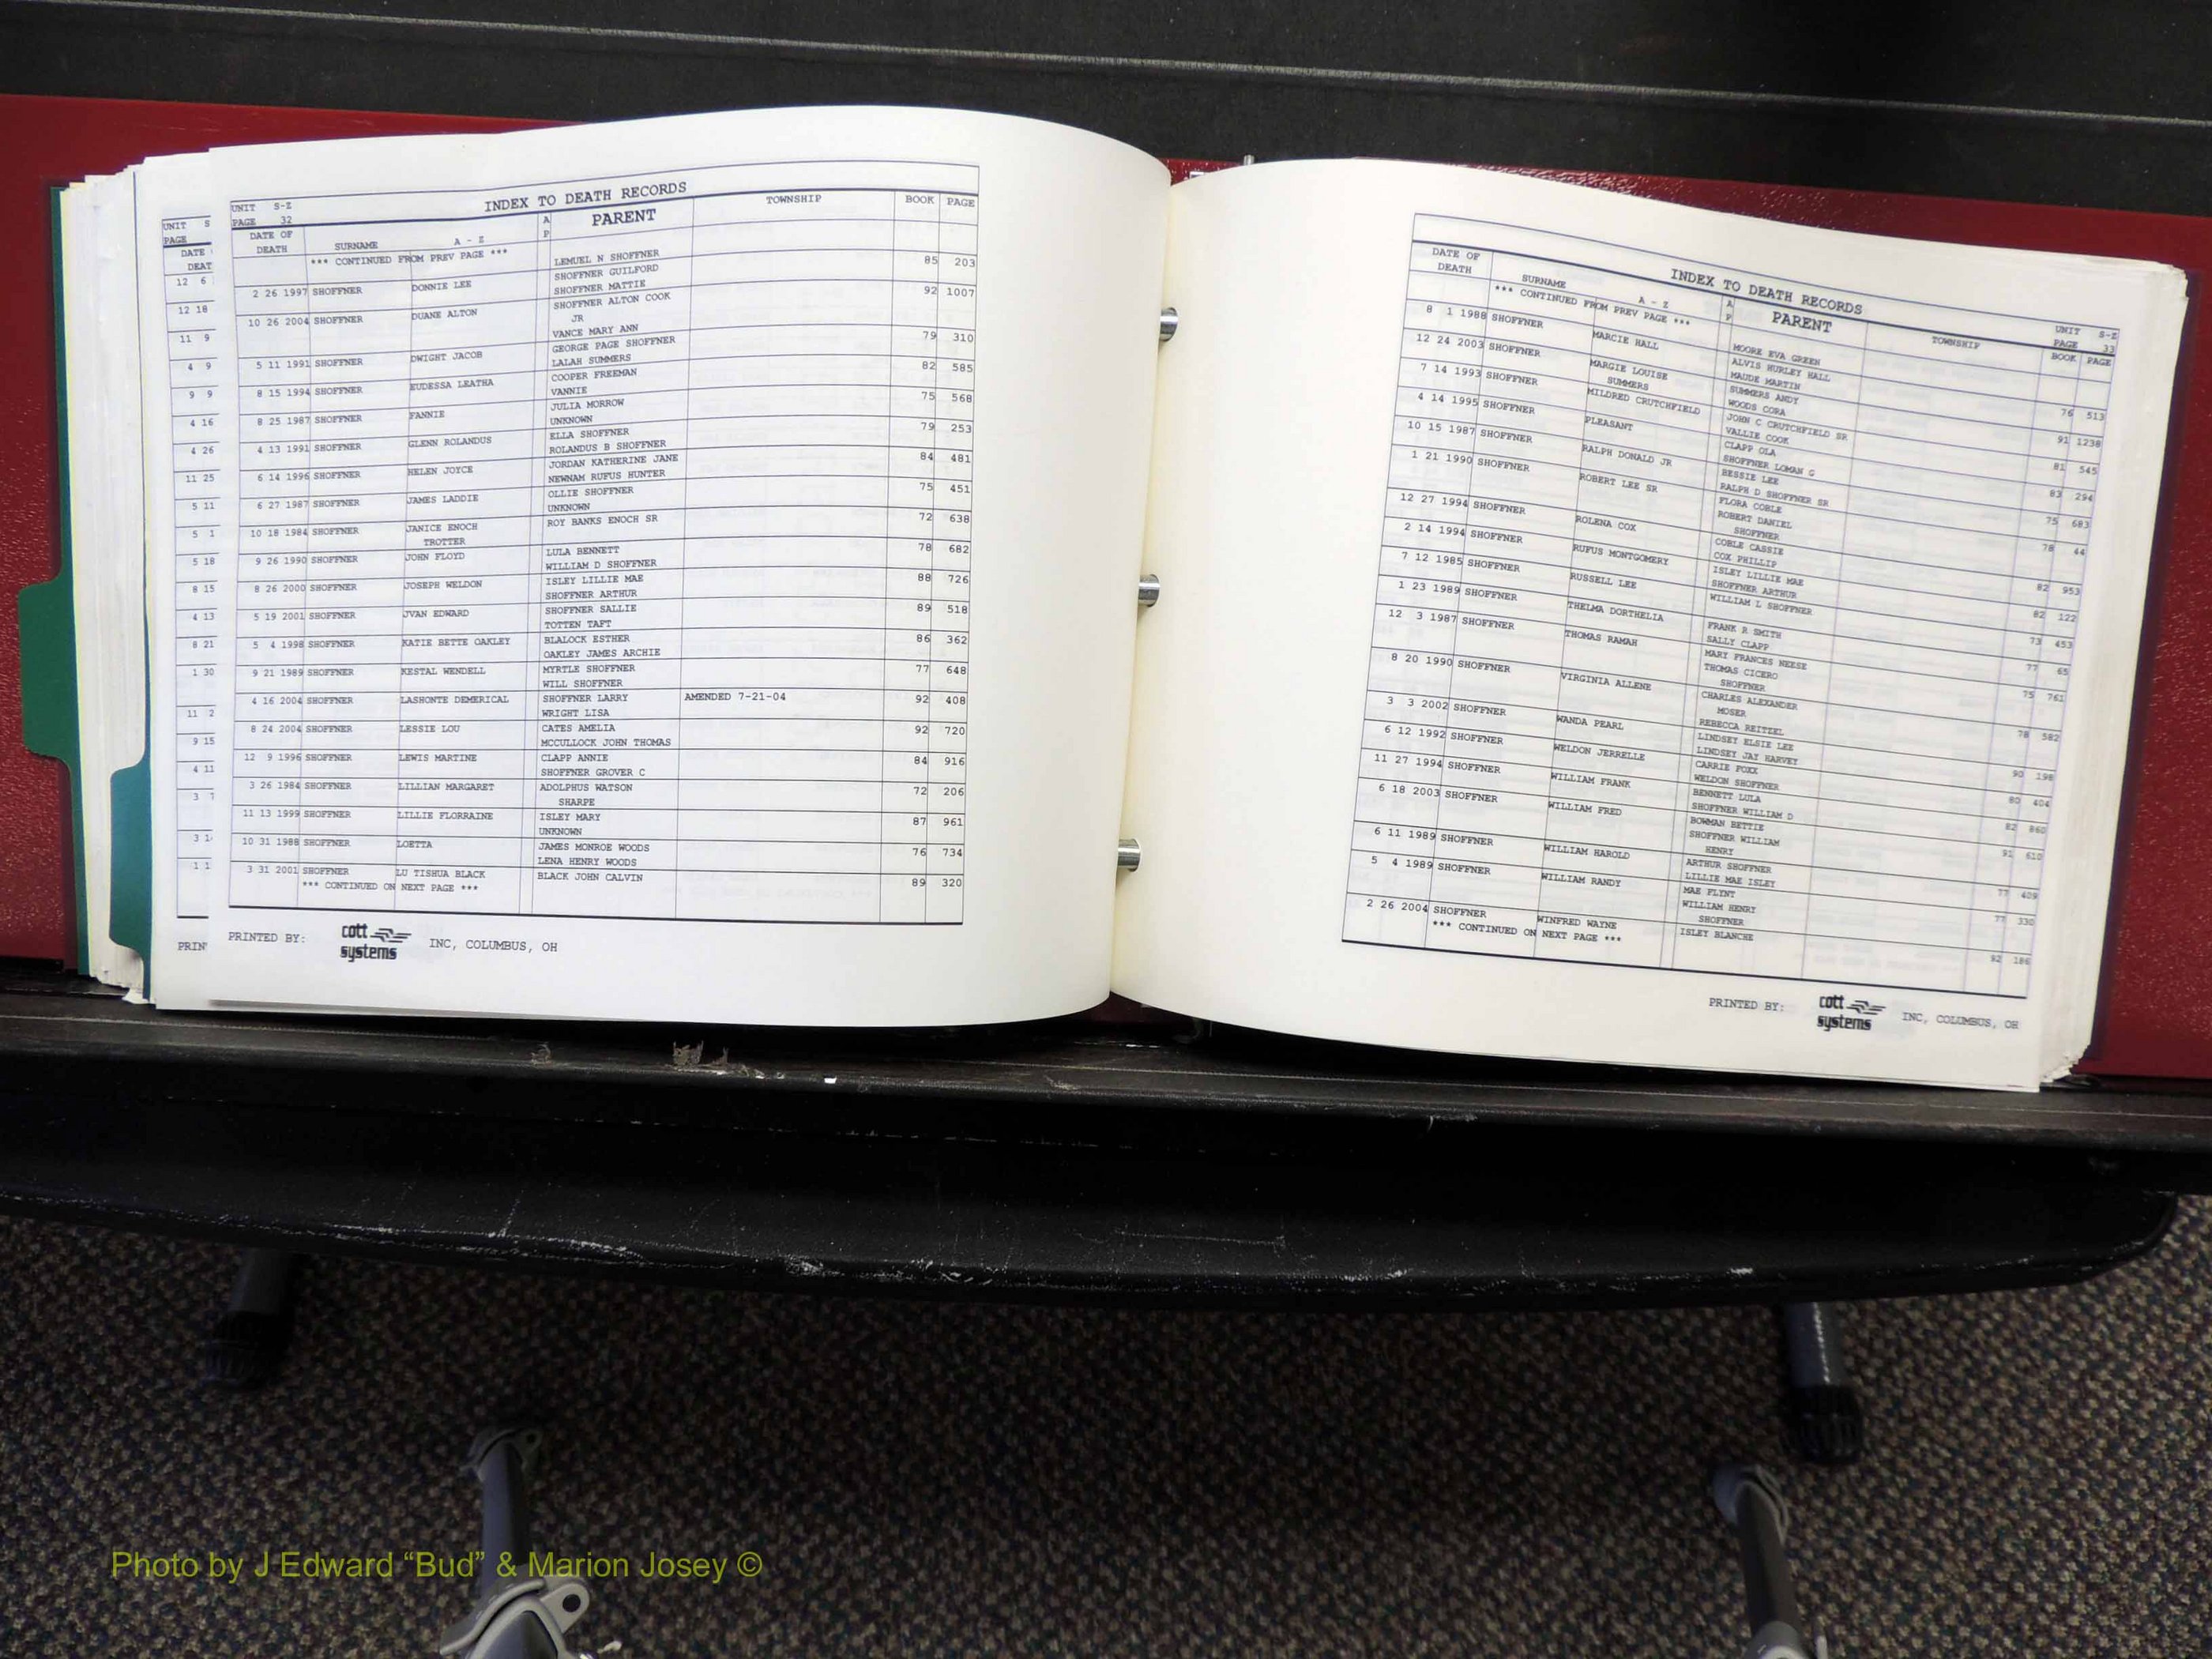 UNIT S
PAGE
DATE
DEAT
12 6
12 18
11 9
4 9
9 9
4 16
4 26
11 25
5 11
5 1
5 18
8 15
4 13
8 21
1 30
11 2
9 15
4 11
3 7
3 1
1 1
PRIN
UNIT S-Z
PAGE 32
INDEX TO DEATH RECORDS
DATE OF DEATH SURNAME A - Z A P PARENT TOWNSHIP BOOK PAGE
*** CONTINUED FROM PREV PAGE *** LEMUEL N SHOFFNER
2 26 1997 SHOFFNER DONNIE LEE SHOFFNER GUILFORD 85 203
SHOFFNER MATTIE
10 26 2004 SHOFFNER DUANE ALTON SHOFFNER ALTON COOK 92 1007
JR
VANCE MARY ANN
5 11 1991 SHOFFNER DWIGHT JACOB GEORGE PAGE SHOFFNER 79 310
LALAH SUMMERS
8 15 1994 SHOFFNER EUDESSA LEATHA COOPER FREEMAN 82 585
VANNIE
8 25 1987 SHOFFNER FANNIE JULIA MORROW 75 568
UNKNOWN
4 13 1991 SHOFFNER GLENN ROLANDUS ELLA SHOFFNER 79 253
ROLANDUS B SHOFFNER
6 14 1996 SHOFFNER HELEN JOYCE JORDAN KATHERINE JANE 84 481
NEWNAM RUFUS HUNTER
6 27 1987 SHOFFNER JAMES LADDIE OLLIE SHOFFNER 75 451
UNKNOWN
10 18 1984 SHOFFNER JANICE ENOCH ROY BANKS ENOCH SR 72 638
TROTTER
9 26 1990 SHOFFNER JOHN FLOYD LULA BENNETT 78 682
WILLIAM D SHOFFNER
8 26 2000 SHOFFNER JOSEPH WELDON ISLEY LILLIE MAE 88 726
SHOFFNER ARTHUR
5 19 2001 SHOFFNER JVAN EDWARD SHOFFNER SALLIE 89 518
TOTTEN TAFT
5 4 1998 SHOFFNER KATIE BETTE OAKLEY BLALOCK ESTHER 86 362
OAKLEY JAMES ARCHIE
9 21 1989 SHOFFNER KESTAL WENDELL MYRTLE SHOFFNER 77 648
WILL SHOFFNER
4 16 2004 SHOFFNER LASHONTE DEMERICAL SHOFFNER LARRY AMENDED 7-21-04 92 408
WRIGHT LISA
8 24 2004 SHOFFNER LESSIE LOU CATES AMELIA 92 720
MCCULLOCK JOHN THOMAS
12 9 1996 SHOFFNER LEWIS MARTINE CLAPP ANNIE 84 916
SHOFFNER GROVER C
3 26 1984 SHOFFNER LILLIAN MARGARET ADOLPHUS WATSON 72 206
SHARPE
11 13 1999 SHOFFNER LILLIE FLORRAINE ISLEY MARY 87 961
UNKNOWN
10 31 1988 SHOFFNER LOETTA JAMES MONROE WOODS 76 734
LENA HENRY WOODS
3 31 2001 SHOFFNER LU TISHUA BLACK BLACK JOHN CALVIN 89 320
*** CONTINUED ON NEXT PAGE ***
PRINTED BY: cott systems INC, COLUMBUS, OH
INDEX TO DEATH RECORDS
UNIT S-Z
PAGE 33
DATE OF DEATH SURNAME A - Z A P PARENT TOWNSHIP BOOK PAGE
*** CONTINUED FROM PREV PAGE *** MOORE EVA GREEN
8 1 1988 SHOFFNER MARCIE HALL ALVIS HURLEY HALL 76 513
MAUDE MARTIN
12 24 2003 SHOFFNER MARGIE LOUISE SUMMERS ANDY 91 1238
SUMMERS WOODS CORA
7 14 1993 SHOFFNER MILDRED CRUTCHFIELD JOHN C CRUTCHFIELD SR 81 545
VALLIE COOK
4 14 1995 SHOFFNER PLEASANT CLAPP OLA 83 294
SHOFFNER LOMAN G
10 15 1987 SHOFFNER RALPH DONALD JR BESSIE LEE 75 683
RALPH D SHOFFNER SR
1 21 1990 SHOFFNER ROBERT LEE SR FLORA COBLE 78 44
ROBERT DANIEL
SHOFFNER
12 27 1994 SHOFFNER ROLENA COX COBLE CASSIE 82 953
COX PHILLIP
2 14 1994 SHOFFNER RUFUS MONTGOMERY ISLEY LILLIE MAE 82 122
SHOFFNER ARTHUR
7 12 1985 SHOFFNER RUSSELL LEE WILLIAM L SHOFFNER 73 453
1 23 1989 SHOFFNER THELMA DORTHELIA FRANK R SMITH 77 65
SALLY CLAPP
12 3 1987 SHOFFNER THOMAS RAMAH MARY FRANCES NEESE 75 761
THOMAS CICERO
SHOFFNER
8 20 1990 SHOFFNER VIRGINIA ALLENE CHARLES ALEXANDER 78 582
MOSER
REBECCA REITZEL
3 3 2002 SHOFFNER WANDA PEARL LINDSEY ELSIE LEE 90 198
LINDSEY JAY HARVEY
6 12 1992 SHOFFNER WELDON JERRELLE CARRIE FOXX 80 404
WELDON SHOFFNER
11 27 1994 SHOFFNER WILLIAM FRANK BENNETT LULA 82 860
SHOFFNER WILLIAM D
6 18 2003 SHOFFNER WILLIAM FRED BOWMAN BETTIE 91 610
SHOFFNER WILLIAM
HENRY
6 11 1989 SHOFFNER WILLIAM HAROLD ARTHUR SHOFFNER 77 409
LILLIE MAE ISLEY
5 4 1989 SHOFFNER WILLIAM RANDY MAE FLYNT 77 330
WILLIAM HENRY
SHOFFNER
2 26 2004 SHOFFNER WINFRED WAYNE ISLEY BLANCHE 92 186
*** CONTINUED ON NEXT PAGE ***
PRINTED BY: cott systems INC, COLUMBUS, OH
Photo by J Edward “Bud” & Marion Josey ©